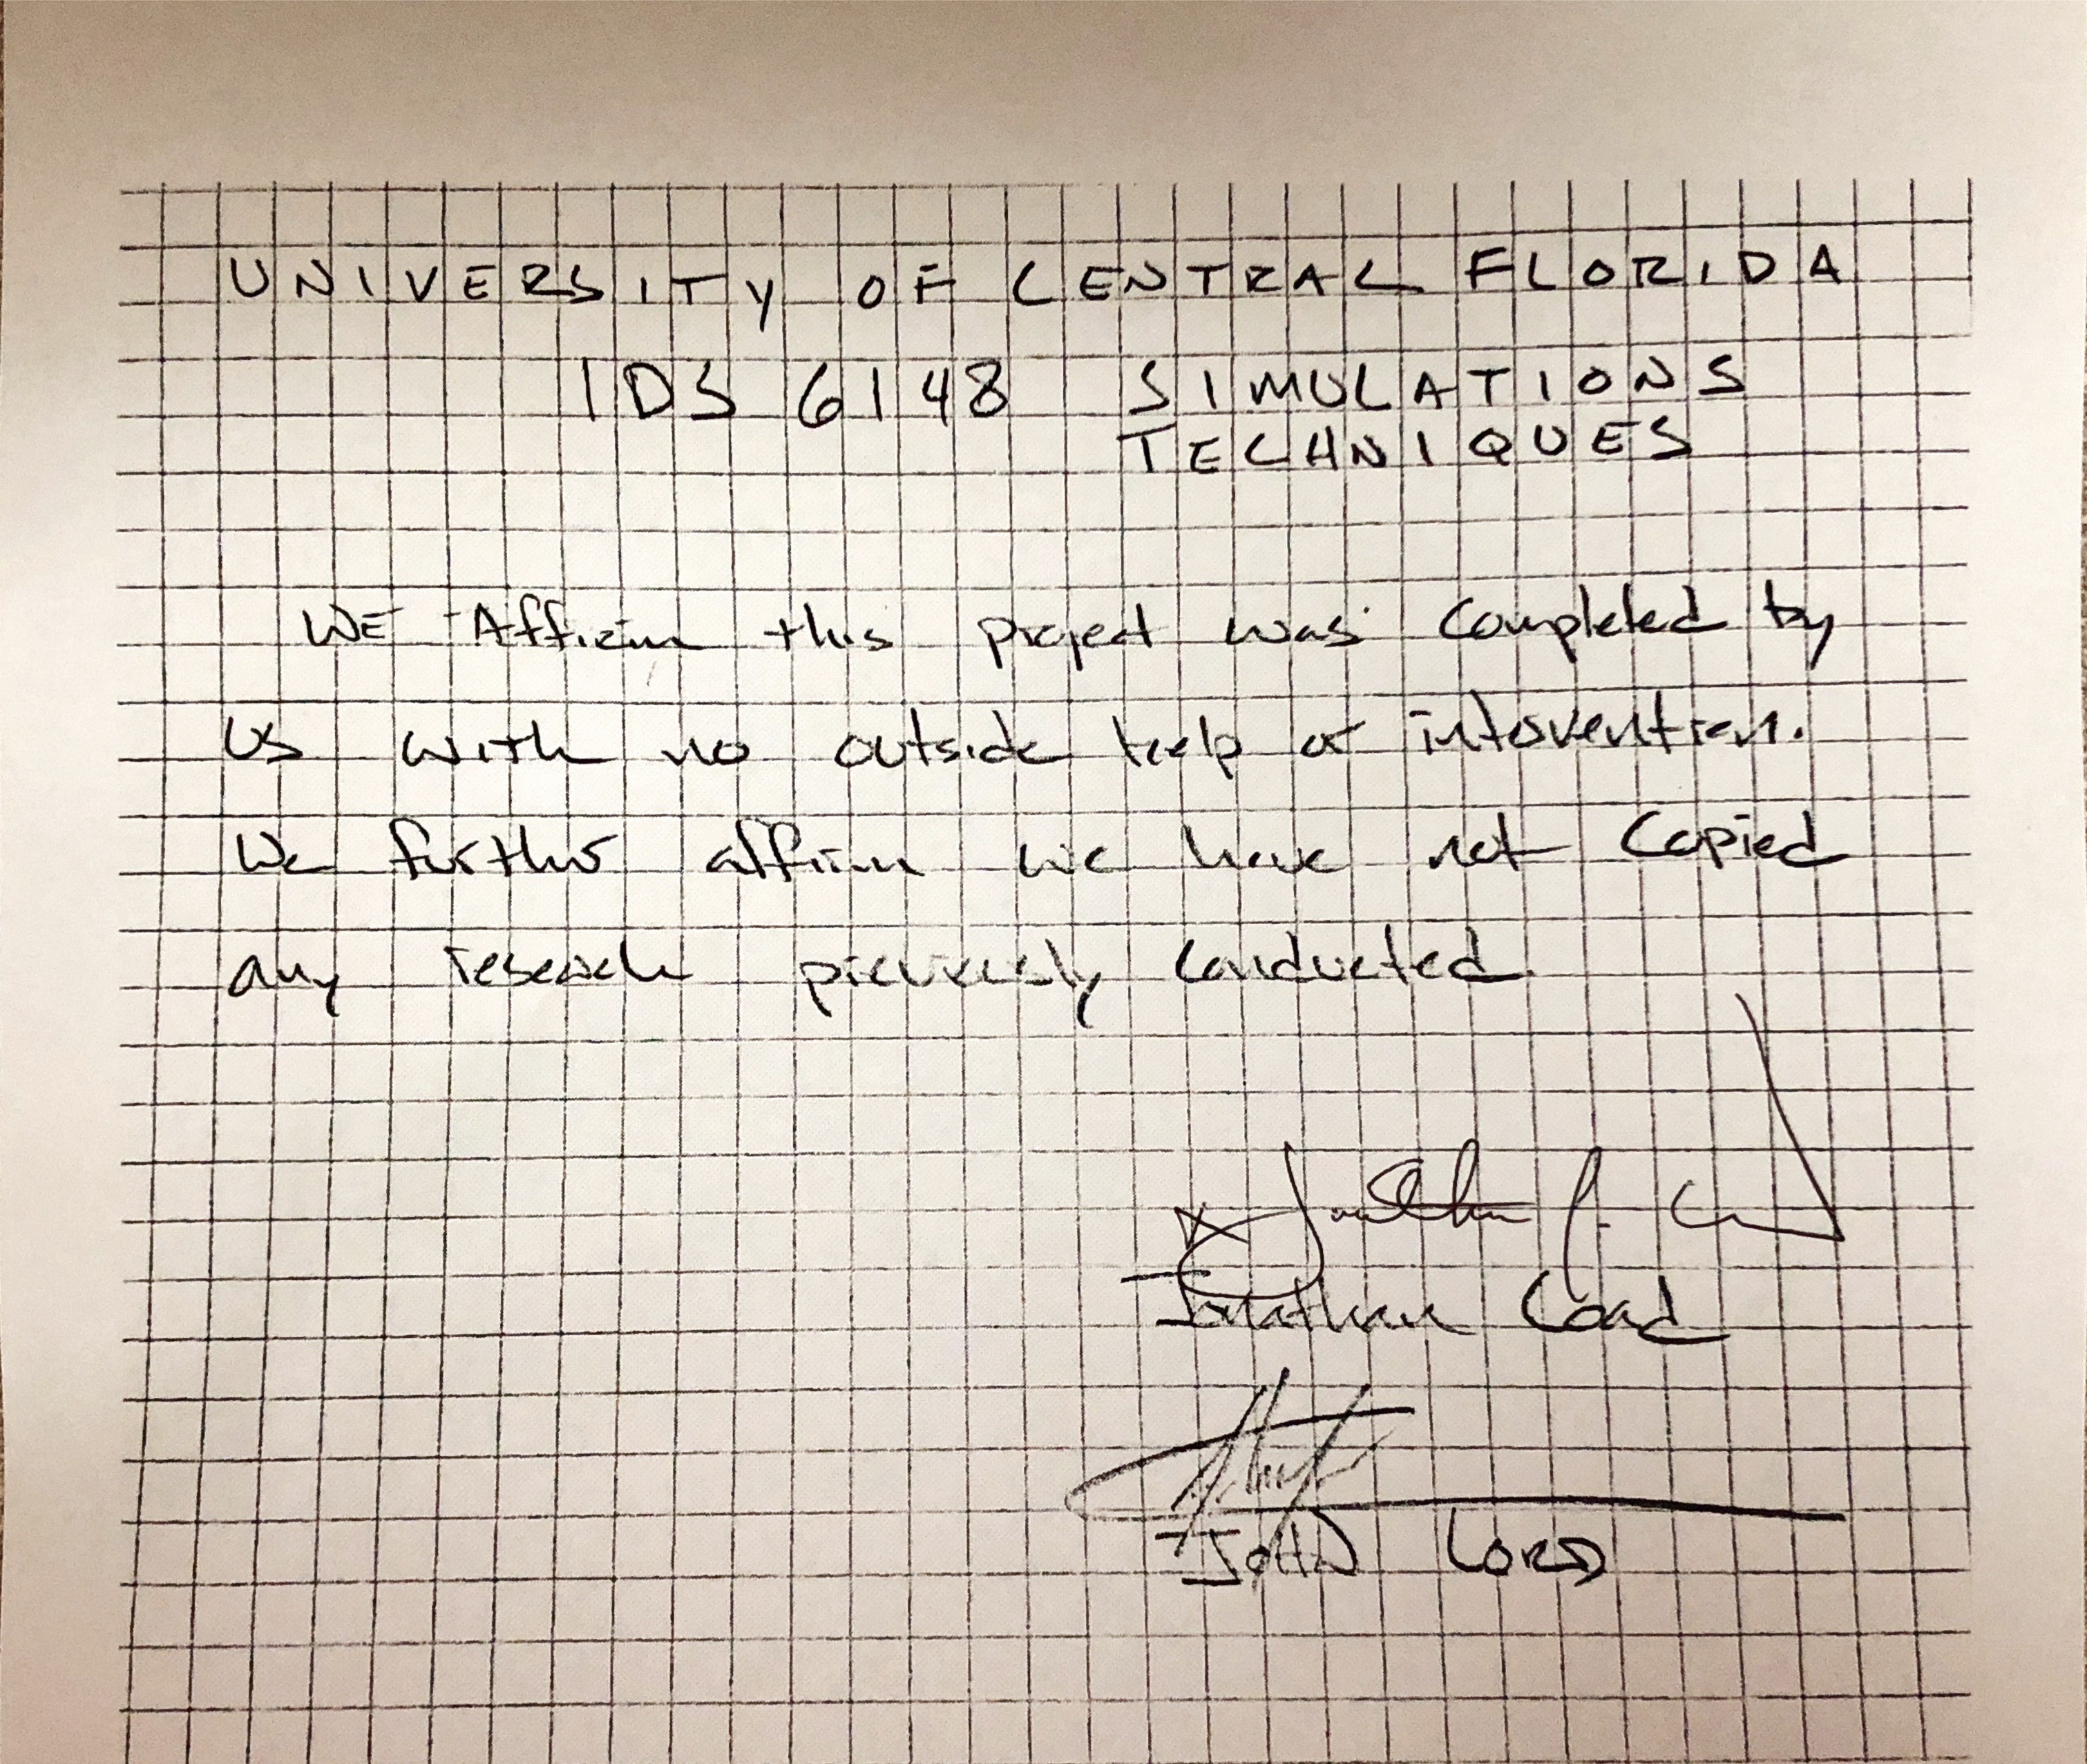 UNIVERSITY OF CENTRAL FLORIDA
IDS 6148 SIMULATIONS
TECHNIQUES
WE Affirm this project was completed by
us with no outside help or intervention.
We further affirm we have not copied
any research previously conducted.
Jonathan Coad
JOHN LORD